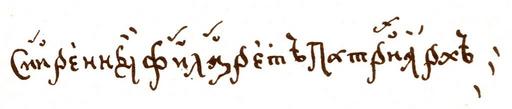 Смиренный філаретъ Патриархъ